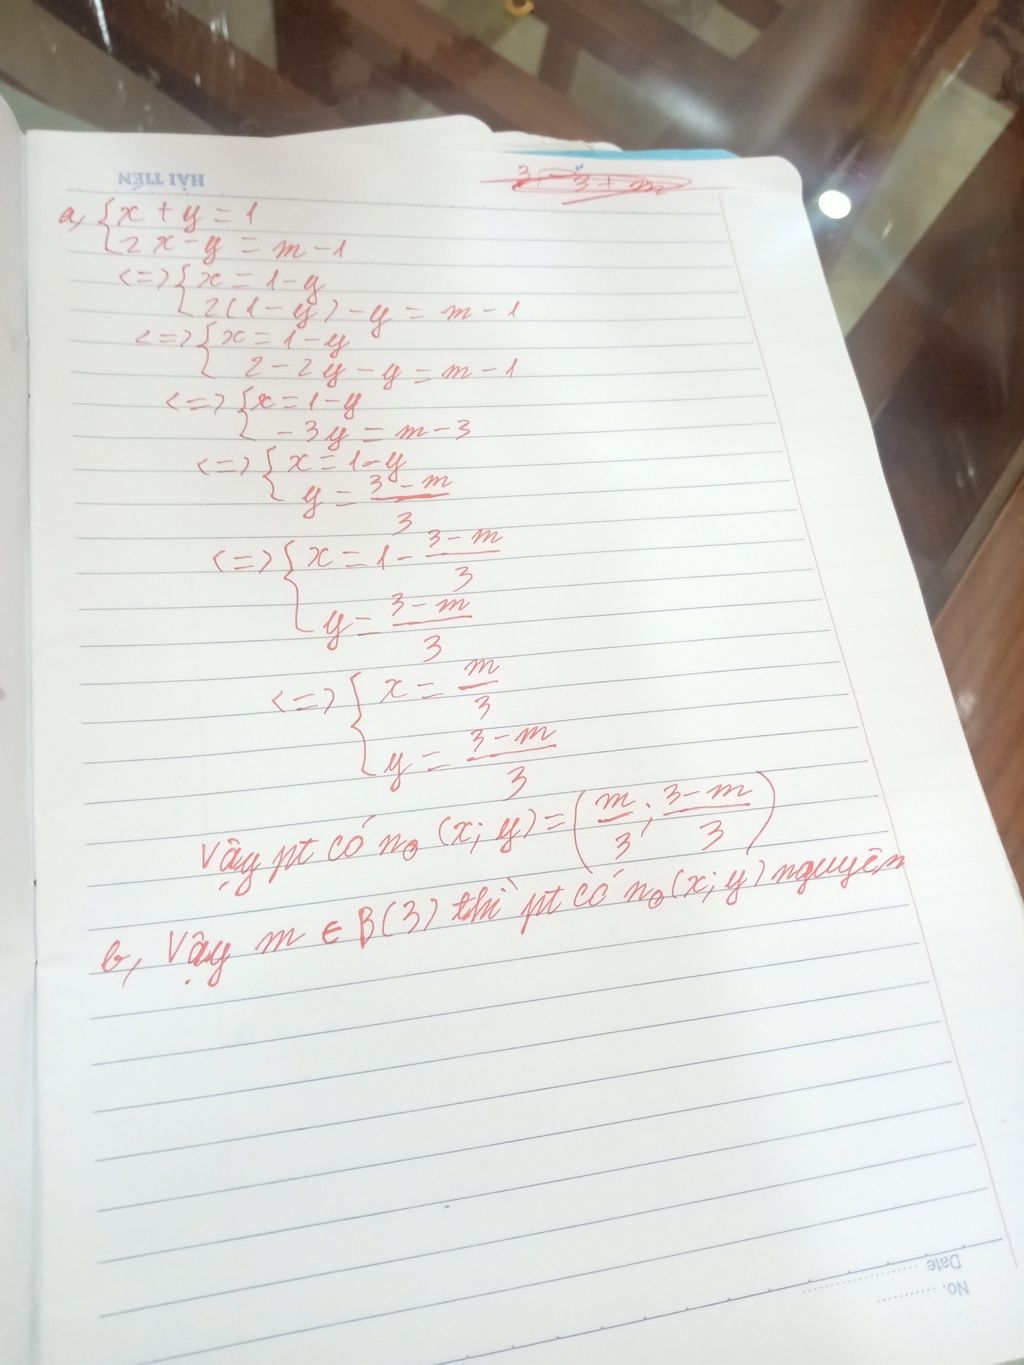 HẢI TIẾN
3 - 3 + m
a, { x + y = 1
2x - y = m - 1
<=> { x = 1 - y
2(1 - y) - y = m - 1
<=> { x = 1 - y
2 - 2y - y = m - 1
<=> { x = 1 - y
- 3y = m - 3
<=> { x = 1 - y
y = \frac{3 - m}{3}
<=> { x = 1 - \frac{3 - m}{3}
y = \frac{3 - m}{3}
<=> { x = \frac{m}{3}
y = \frac{3 - m}{3}
Vậy pt có n₀ (x; y) = (\frac{m}{3}; \frac{3 - m}{3})
b, Vậy m ∈ B(3) thì pt có n₀ (x; y) nguyên
Date
No.